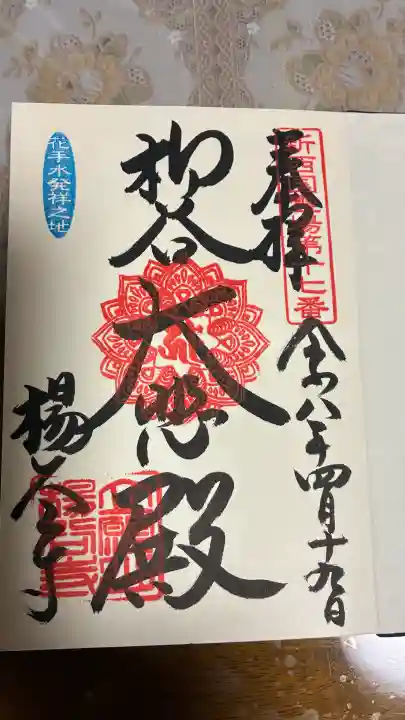 奉拝
新西国霊場第十七番
令和八年四月十九日
柳谷
大悲殿
花手水発祥之地
楊谷寺